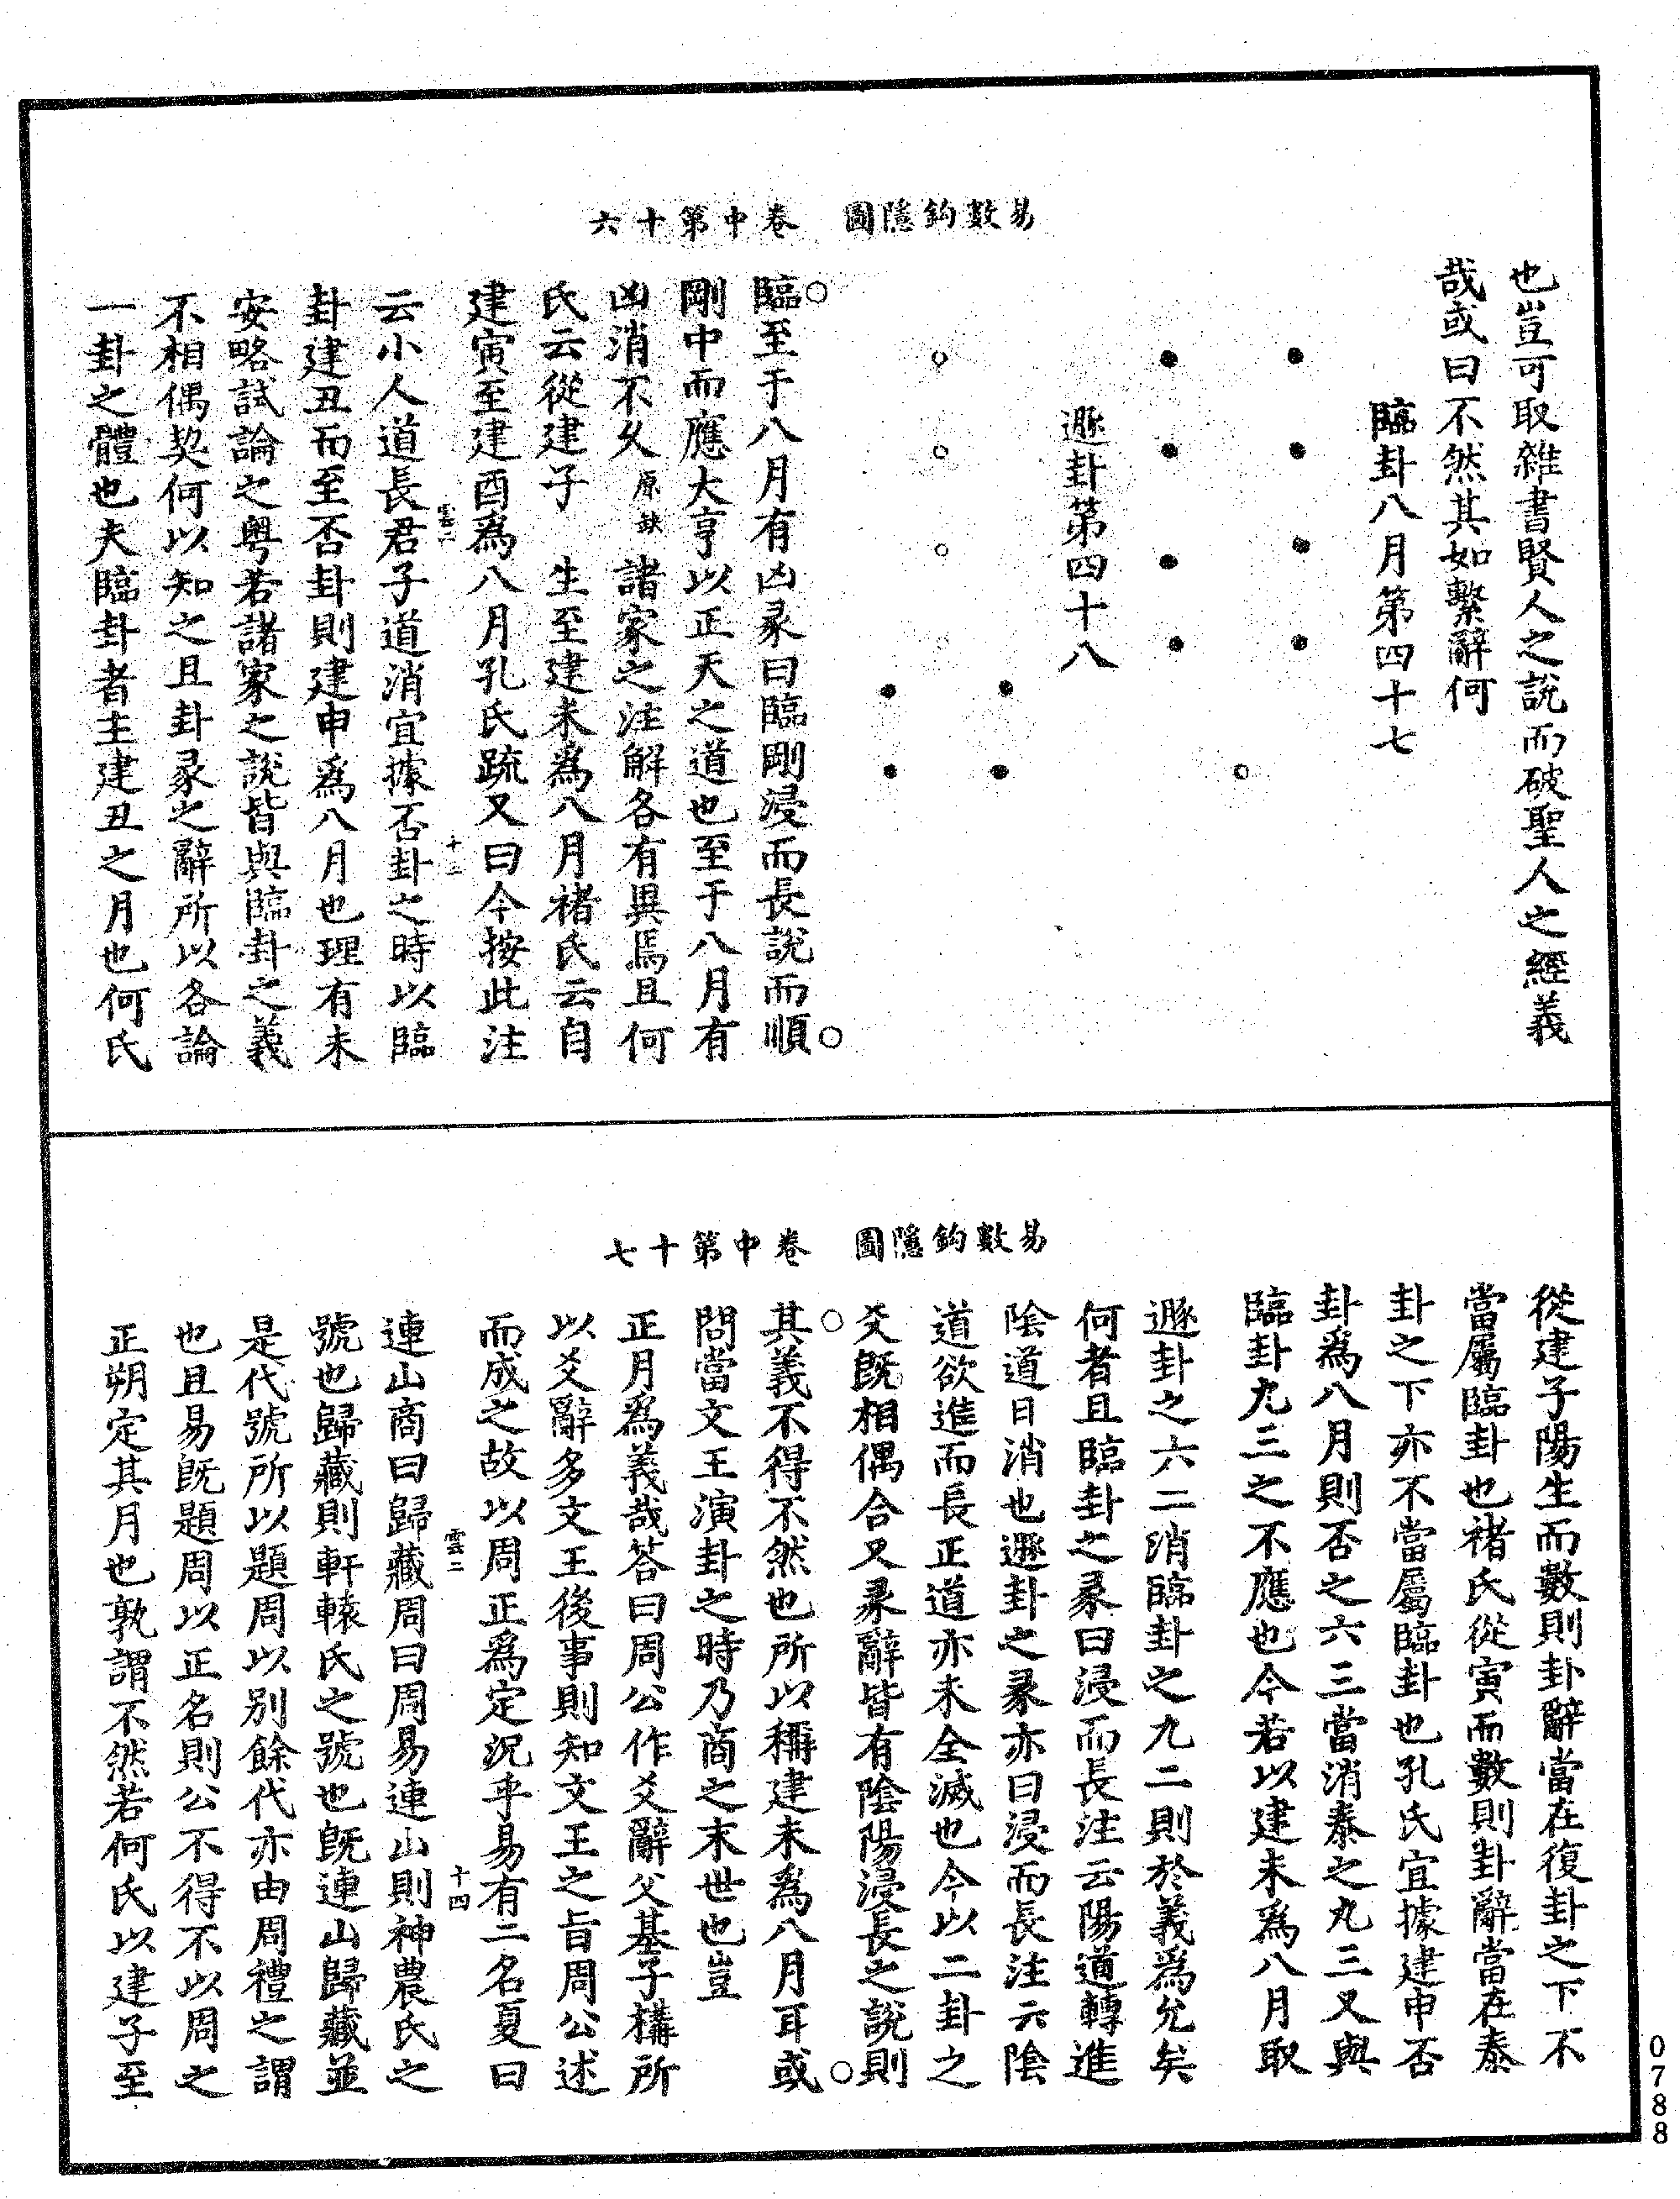 易數鈎隱圖　卷中第十六
也豈可取雜書賢人之說而破聖人之經義
哉或曰不然其如繫辭何
臨卦八月第四十七
遯卦第四十八
臨至于八月有凶彖曰臨剛浸而長說而順
剛中而應大亨以正天之道也至于八月有
凶消不久原缺諸家之注解各有異焉且何
氏云從建子　生至建未為八月褚氏云自
建寅至建酉為八月孔氏疏又曰今按此注
雲二　十三
云小人道長君子道消宜據否卦之時以臨
卦建丑而至否卦則建申為八月也理有未
安略試論之粵若諸家之說皆與臨卦之義
不相偶契何以知之且卦彖之辭所以各論
一卦之體也夫臨卦者主建丑之月也何氏
易數鈎隱圖　卷中第十七
從建子陽生而數則卦辭當在復卦之下不
當屬臨卦也褚氏從寅而數則卦辭當在泰
卦之下亦不當屬臨卦也孔氏宜據建申否
卦為八月則否之六三當消泰之九三又與
臨卦九三之不應也今若以建未為八月取
遯卦之六二消臨卦之九二則於義為允矣
何者且臨卦之彖曰浸而長注云陽道轉進
陰道日消也遯卦之彖亦曰浸而長注云陰
道欲進而長正道亦未全滅也今以二卦之
爻既相偶合又彖辭皆有陰陽浸長之說則
其義不得不然也所以稱建未為八月耳或
問當文王演卦之時乃商之末世也豈
正月為義哉答曰周公作爻辭父基子構所
以爻辭多文王後事則知文王之旨周公述
而成之故以周正為定況乎易有二名夏曰
雲二　十四
連山商曰歸藏周曰周易連山則神農氏之
號也歸藏則軒轅氏之號也既連山歸藏並
是代號所以題周以別餘代亦由周禮之謂
也且易既題周以正名則公不得不以周之
正朔定其月也孰謂不然若何氏以建子至
0788